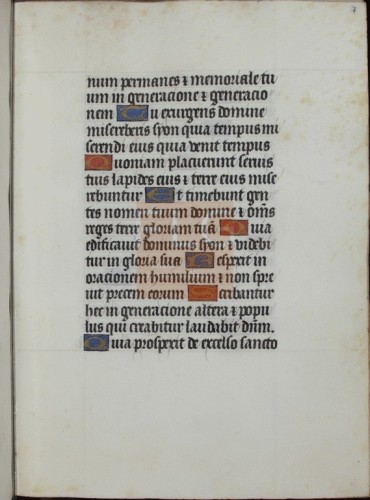 7
num permanes ⁊ memoriale tu
um in generacione ⁊ generacio
nem Tu exurgens domine
misereberis syon quia tempus mi
serendi eius quia venit tempus
Quoniam placuerunt servis
tuis lapides eius ⁊ terre eius mise
rebuntur Et timebunt gen
tes nomen tuum domine ⁊ om̄s
reges terre gloriam tuā Quia
edificavit dominus syon ⁊ videbi
tur in gloria sua Respexit in
orationem humilium ⁊ non spre
vit precem eorum Scribantur
hec in generacione altera ⁊ popu
lus qui creabitur laudabit dn̄m.
Quia prospexit de excelso sancto